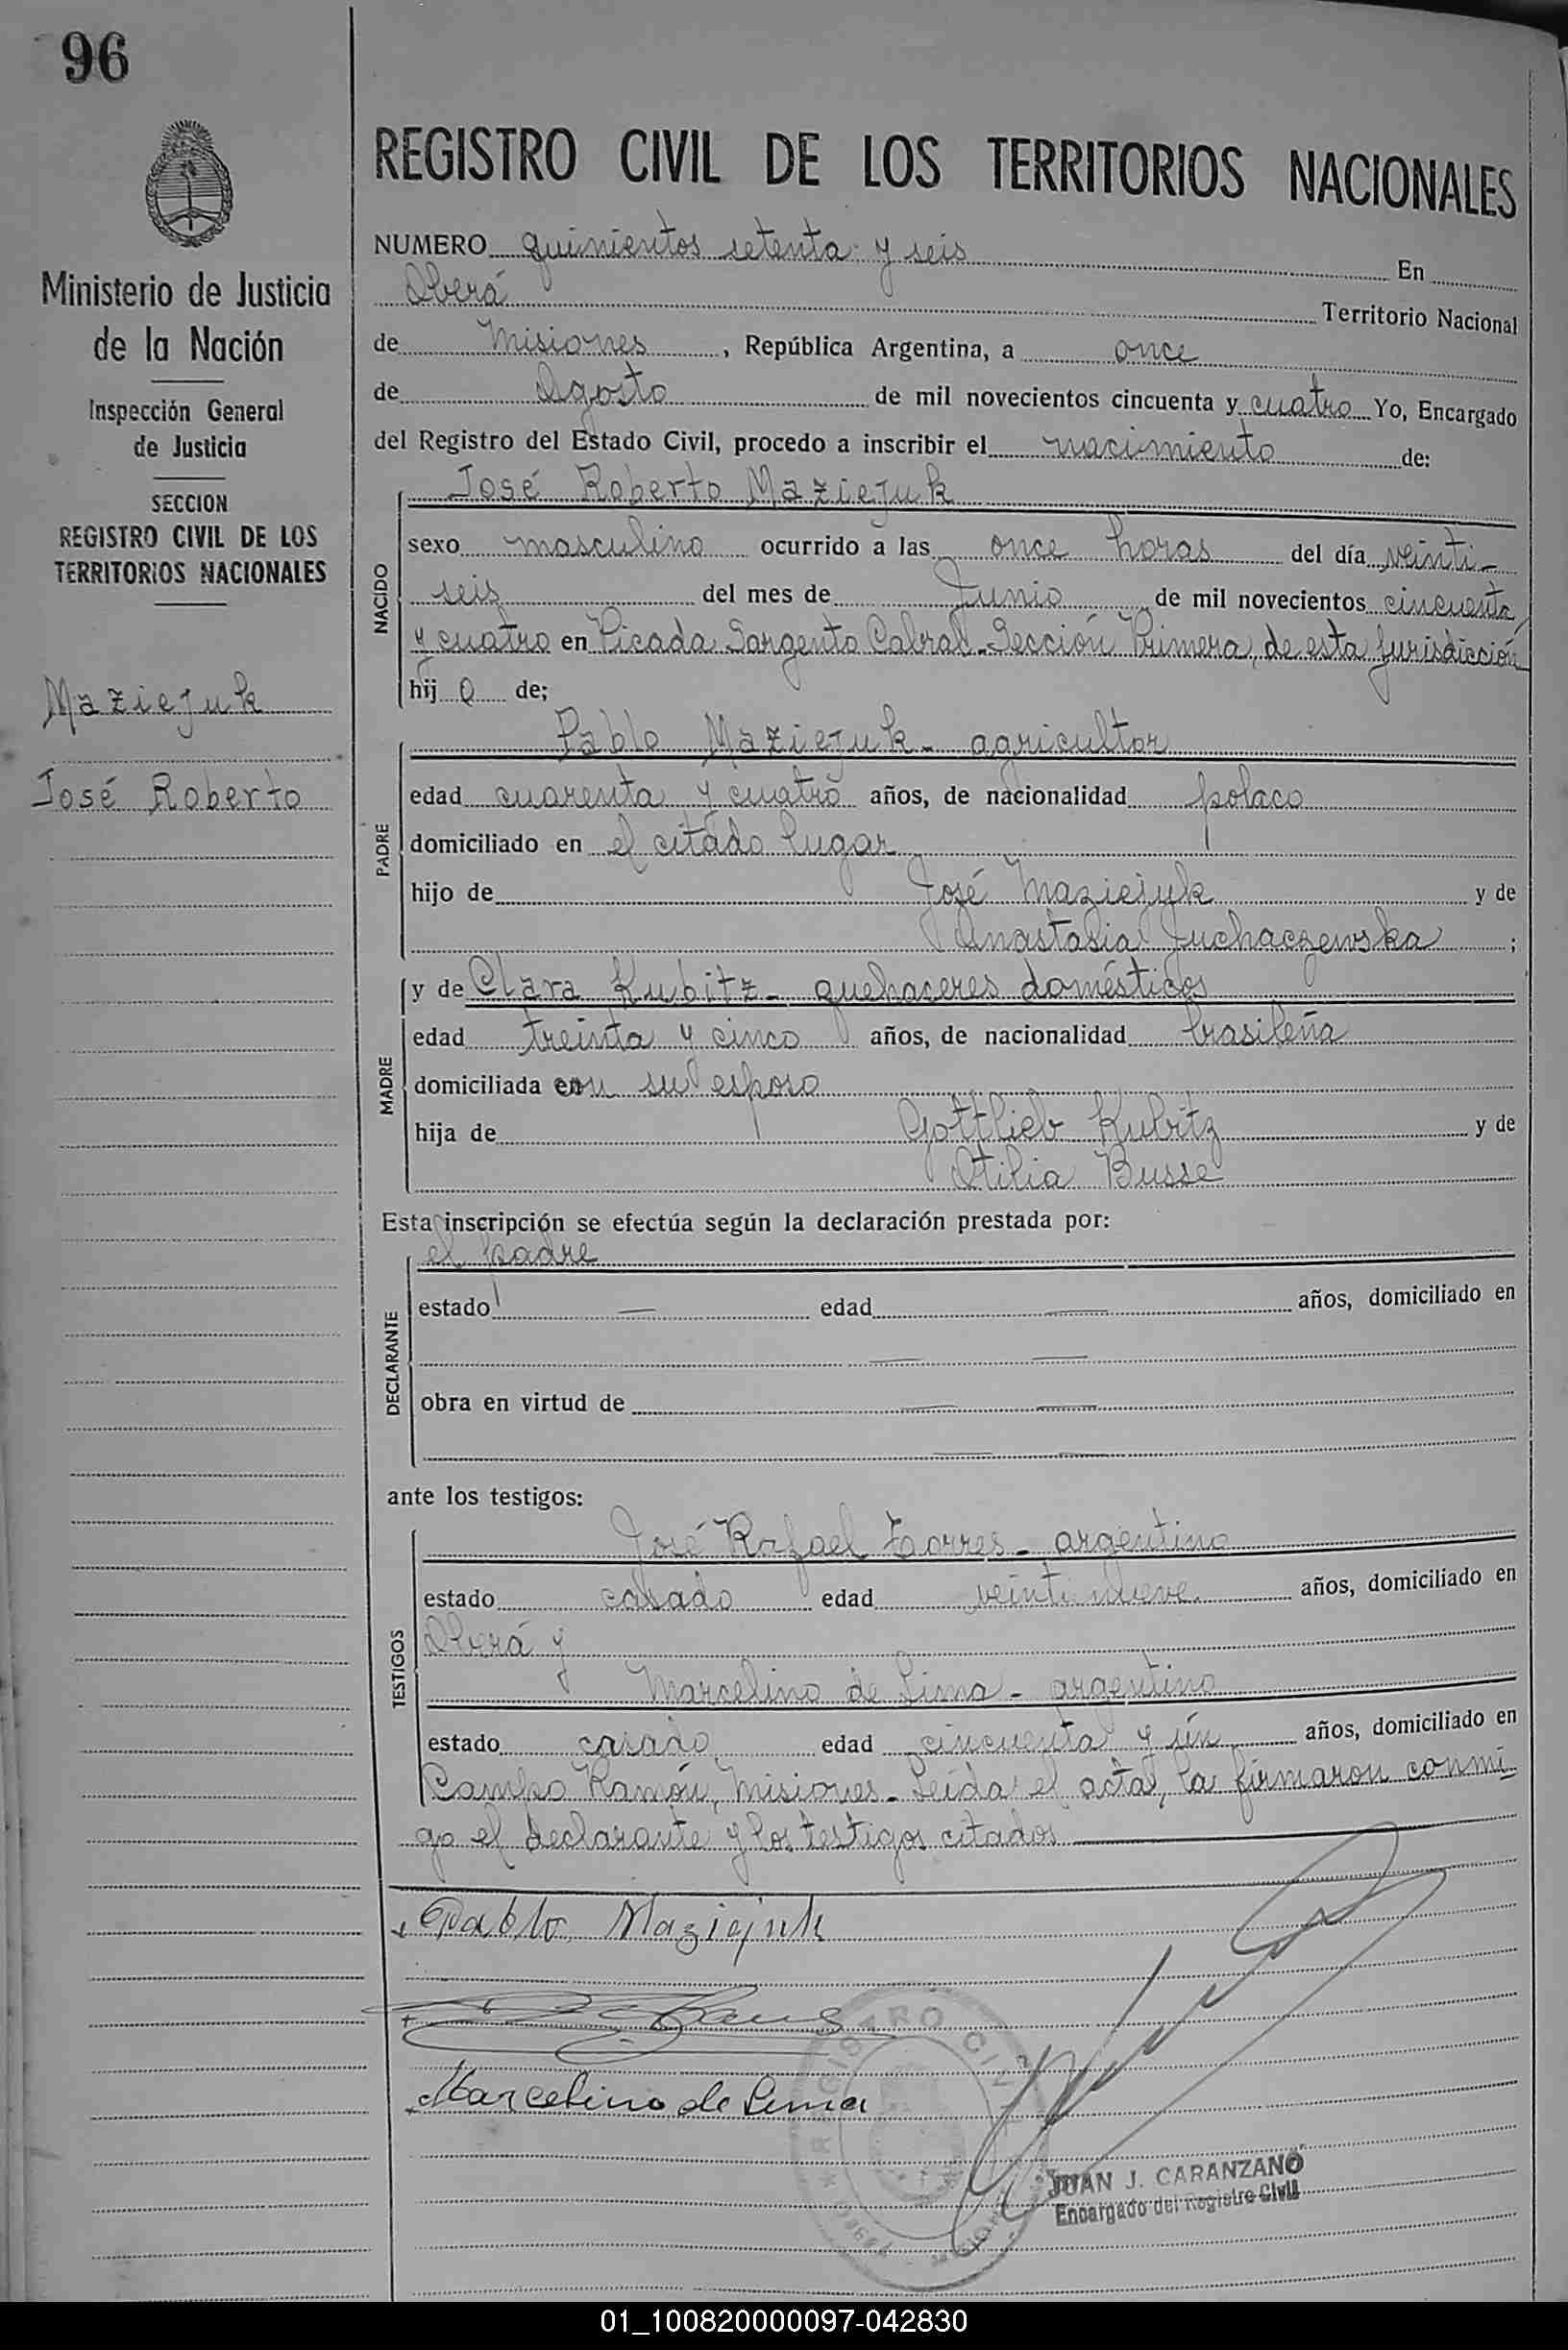 96
REGISTRO CIVIL DE LOS TERRITORIOS NACIONALES
Ministerio de Justicia
de la Nación
Inspección General
de Justicia
SECCION
REGISTRO CIVIL DE LOS
TERRITORIOS NACIONALES
Maziejuk
José Roberto
NUMERO quinientos setenta y seis En
Oberá Territorio Nacional
de Misiones, República Argentina, a once
de Agosto de mil novecientos cincuenta y cuatro Yo, Encargado
del Registro del Estado Civil, procedo a inscribir el nacimiento de:
NACIDO
José Roberto Maziejuk
sexo masculino ocurrido a las once horas del día veinti-
seis del mes de Junio de mil novecientos cincuenta
y cuatro en Picada Sargento Cabral-Sección Primera, de esta jurisdicción
hij o de;
PADRE
Pablo Maziejuk- agricultor
edad cuarenta y cuatro años, de nacionalidad polaco
domiciliado en el citado lugar
hijo de José Maziejuk y de
Anastasia Juchaczewska ;
MADRE
y de Clara Kubitz- quehaceres domésticos
edad treinta y cinco años, de nacionalidad brasileña
domiciliada con su esposo
hija de Gottlieb Kubitz y de
Otilia Busse
Esta inscripción se efectúa según la declaración prestada por:
DECLARANTE
el padre
estado — edad — años, domiciliado en
— —
obra en virtud de — —
— —
ante los testigos:
TESTIGOS
José Rafael Torres- argentino
estado casado edad veintinueve años, domiciliado en
Oberá y
Marcelino de Lima- argentino
estado casado edad cincuenta y un años, domiciliado en
Campo Ramón, Misiones- Leída el acta, la firmaron conmi-
go el declarante y los testigos citados
Pablo Maziejuk
Marcelino de Lima
REGISTRO CIVIL
JUAN J. CARANZANO
Encargado del Registro Civil
01_100820000097-042830